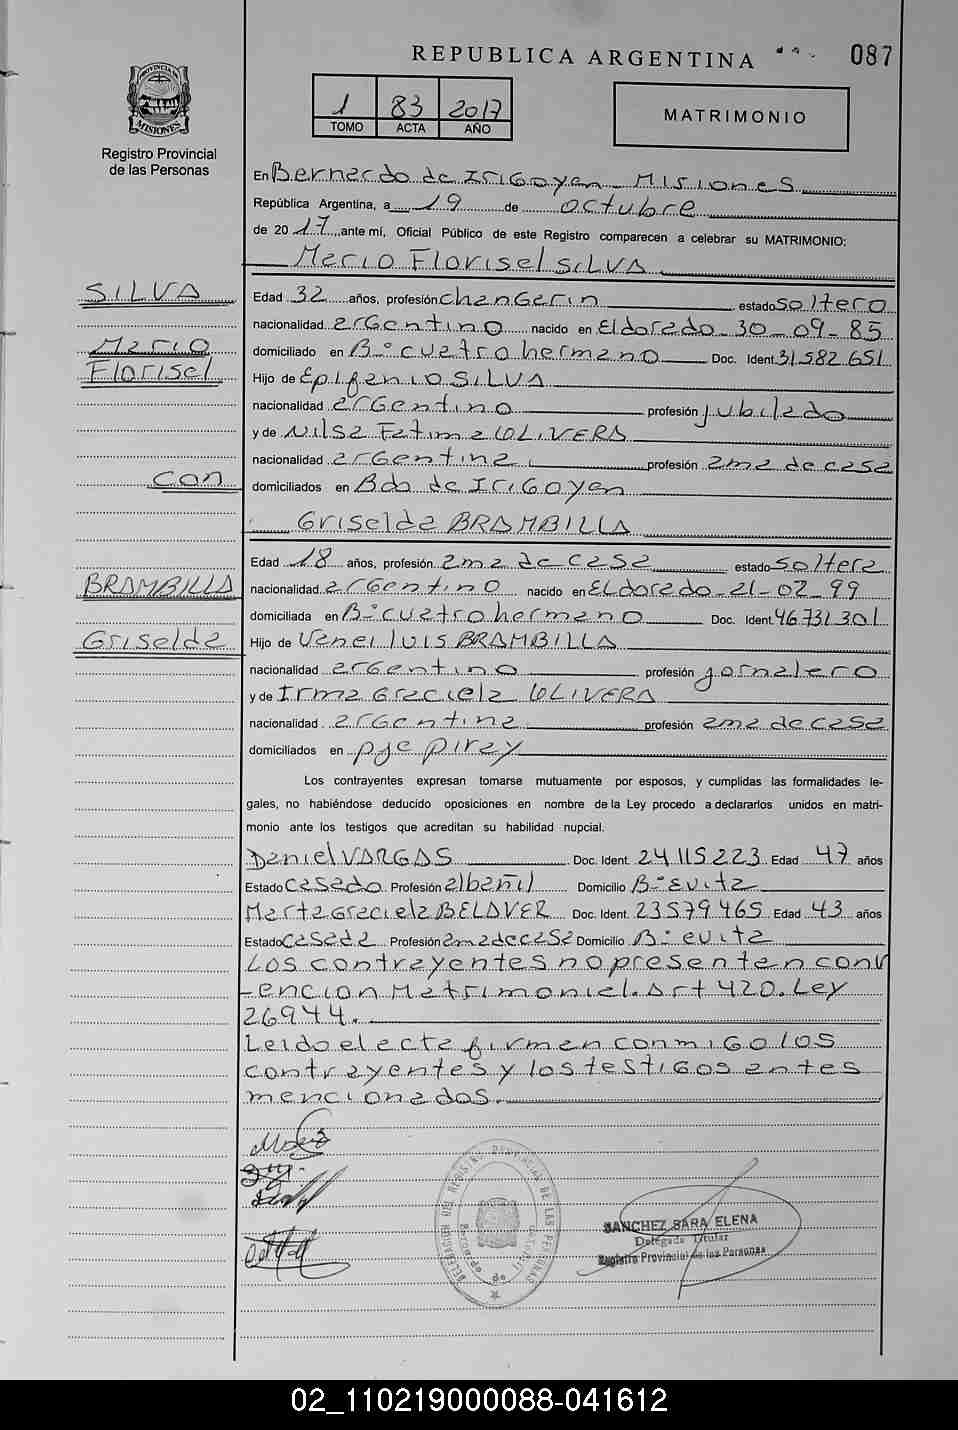 REPUBLICA ARGENTINA
087
PROVINCIA DE MISIONES
Registro Provincial
de las Personas
1 83 2017
TOMO ACTA AÑO
MATRIMONIO
En Bernardo de IRIGOYEN - MISIONES
República Argentina, a 19 de octubre
de 2017 ante mí, Oficial Público de este Registro comparecen a celebrar su MATRIMONIO:
Mario Florisel SILVA
SILVA
Mario
Florisel
con
BRAMBILLA
Griselda
Edad 32 años, profesión changarin estado soltero
nacionalidad argentino nacido en Eldorado - 30 - 09 - 85
domiciliado en B° cuatro hermano Doc. Ident. 31582651
Hijo de Epifanio SILVA
nacionalidad argentino profesión jubilado
y de Nilsa Fatima OLIVERA
nacionalidad argentina profesión ama de casa
domiciliados en Bdo de IRIGOYEN
Griselda BRAMBILLA
Edad 18 años, profesión ama de casa estado soltera
nacionalidad argentino nacido en Eldorado - 21 - 02 - 99
domiciliada en B° cuatro hermano Doc. Ident. 46731301
Hijo de Venei LUIS BRAMBILLA
nacionalidad argentino profesión jornalero
y de Irma Graciela OLIVERA
nacionalidad argentina profesión ama de casa
domiciliados en pje piray
Los contrayentes expresan tomarse mutuamente por esposos, y cumplidas las formalidades le-
gales, no habiéndose deducido oposiciones en nombre de la Ley procedo a declararlos unidos en matri-
monio ante los testigos que acreditan su habilidad nupcial.
Daniel VARGAS Doc. Ident. 24115223 Edad 47 años
Estado casado Profesión albañil Domicilio B° Evita
Marta Graciela BELAVER Doc. Ident. 23579465 Edad 43 años
Estado casada Profesión ama de casa Domicilio B° evita
Los contrayentes no presentan conv
-encion Matrimonial. Art 420. Ley
26944.
Leido el acta firman conmigo los
contrayentes y los testigos antes
mencionados.
DELEGACION DEL REGISTRO PROVINCIAL DE LAS PERSONAS
SANCHEZ SARA ELENA
Delegada Titular
Registro Provincial de las Personas
02_110219000088-041612